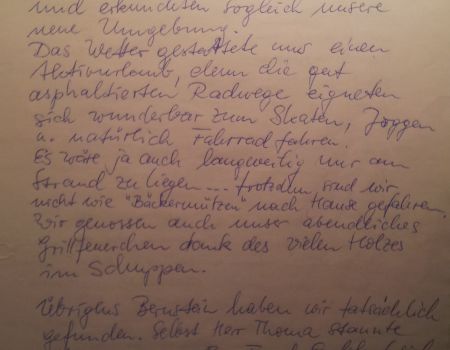 und erkundeten sogleich unsere
neue Umgebung.
Das Wetter gestattete nur einen
Aktivurlaub, denn die gut
asphaltierten Radwege eigneten
sich wunderbar zum Skaten, Joggen
u. natürlich Fahrrad fahren.
Es wäre ja auch langweilig nur am
Strand zu liegen... trotzdem sind wir
nicht wie "Bäckermützen" nach Hause gefahren.
Wir genossen auch unser abendliches
Grillfeuerchen dank des vielen Holzes
im Schuppen.
Übrigens Bernstein haben wir tatsächlich
gefunden. Selbst Herr Thoma staunte